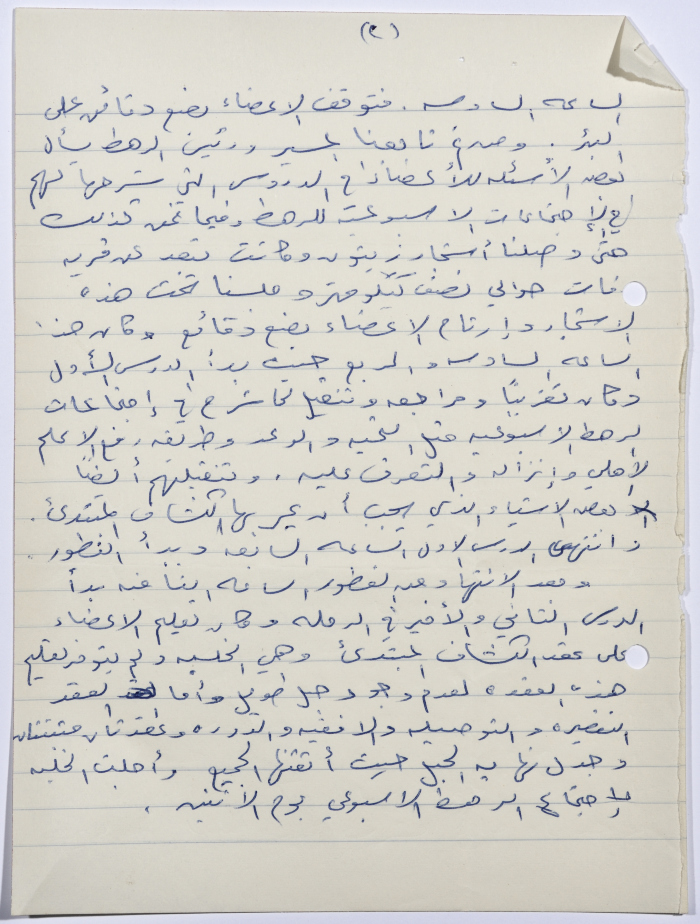 (٢)
الساعه السادسه . فتوقف الاعضاء بضع دقائق على
البئر . ومن ثم تابعنا المسير ورئيس الرهط يسأل
بعض الأسئله للأعضاء في الدروس التي شرحها لهم
في الإجتماعات الاسبوعيه للرهط وفيما نحن كذلك
حتى وصلنا أشجار زيتون وكانت تبعد عن قريه
حوالي نصف كيلومتر وجلسنا تحت هذه
الاشجار وإرتاح الاعضاء بضع دقائق وكان هذا
الساعه السادسه والربع حيث بدأ الدرس الأول
وكان تقريبًا مراجعه وتنقيل لما شرح في إجتماعات
الرهط الاسبوعيه مثل التحيه والوعد وطريقه رفع الاعلام
وإنزاله والتعرف عليه . أيضًا
بعض الاشياء الذي يجب أن يمر بها الكشاف المبتدئ .
وانتهى الدرس الاول الساعه السابعه وبدأ الفطور .
وبعد الانتهاء من الفطور الساعه الثامنه بدأ
الدرس الثاني والأخير في الرحله وكان تعليم الاعضاء
على عقد الكشاف المبتدئ وهي الخلبيه ولم يتوفر تعليم
هذه العقده لعدم وجود حبل طويل وأما لعقد
والتوصيله والافقيه والدوره وعقدتان
وجدل نهايه الحبل حيث أتقنها الجميع وأجلت الخلبيه
لإجتماع الرهط الاسبوعي يوم الأثنين .